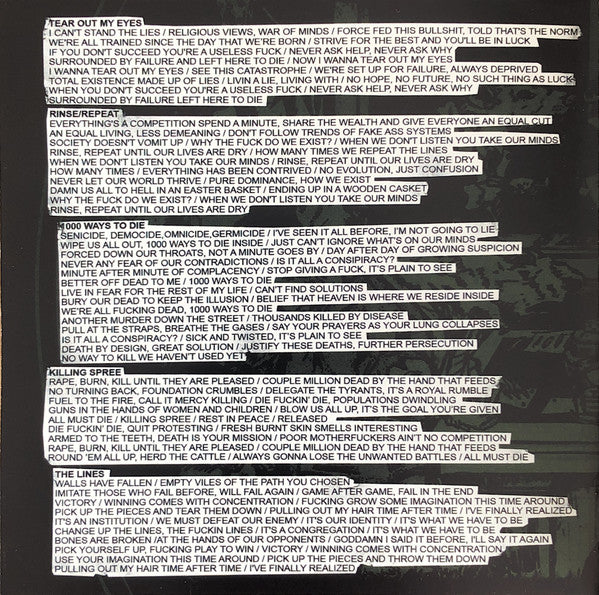 TEAR OUT MY EYES
I CAN'T STAND THE LIES / RELIGIOUS VIEWS, WAR OF MINDS / FORCE FED THIS BULLSHIT, TOLD THAT'S THE NORM
WE'RE ALL TRAINED SINCE THE DAY THAT WE'RE BORN / STRIVE FOR THE BEST AND YOU'LL BE IN LUCK
IF YOU DON'T SUCCEED YOU'RE A USELESS FUCK / NEVER ASK HELP, NEVER ASK WHY
SURROUNDED BY FAILURE AND LEFT HERE TO DIE / NOW I WANNA TEAR OUT MY EYES
I WANNA TEAR OUT MY EYES / SEE THIS CATASTROPHE / WE'RE SET UP FOR FAILURE, ALWAYS DEPRIVED
TOTAL EXISTENCE MADE UP OF LIES / LIVIN A LIE, LIVING WITH / NO HOPE, NO FUTURE, NO SUCH THING AS LUCK
WHEN YOU DON'T SUCCEED YOU'RE A USELESS FUCK / NEVER ASK HELP, NEVER ASK WHY
SURROUNDED BY FAILURE LEFT HERE TO DIE
RINSE/REPEAT
EVERYTHING'S A COMPETITION SPEND A MINUTE, SHARE THE WEALTH AND GIVE EVERYONE AN EQUAL CUT
AN EQUAL LIVING, LESS DEMEANING / DON'T FOLLOW TRENDS OF FAKE ASS SYSTEMS
SOCIETY DOESN'T VOMIT UP / WHY THE FUCK DO WE EXIST? / WHEN WE DON'T LISTEN YOU TAKE OUR MINDS
RINSE, REPEAT UNTIL OUR LIVES ARE DRY / HOW MANY TIMES WE REPEAT THE LINES
WHEN WE DON'T LISTEN YOU TAKE OUR MINDS / RINSE, REPEAT UNTIL OUR LIVES ARE DRY
HOW MANY TIMES / EVERYTHING HAS BEEN CONTRIVED / NO EVOLUTION, JUST CONFUSION
NEVER LET OUR WORLD THRIVE / PURE DOMINANCE, HOW WE EXIST
DAMN US ALL TO HELL IN AN EASTER BASKET / ENDING UP IN A WOODEN CASKET
WHY THE FUCK DO WE EXIST? / WHEN WE DON'T LISTEN YOU TAKE OUR MINDS
RINSE, REPEAT UNTIL OUR LIVES ARE DRY
1000 WAYS TO DIE
SENICIDE, DEMOCIDE,OMNICIDE,GERMICIDE / I'VE SEEN IT ALL BEFORE, I'M NOT GOING TO LIE
WIPE US ALL OUT, 1000 WAYS TO DIE INSIDE / JUST CAN'T IGNORE WHAT'S ON OUR MINDS
FORCED DOWN OUR THROATS, NOT A MINUTE GOES BY / DAY AFTER DAY OF GROWING SUSPICION
NEVER ANY FEAR OF OUR CONTRADICTIONS / IS IT ALL A CONSPIRACY?
MINUTE AFTER MINUTE OF COMPLACENCY / STOP GIVING A FUCK, IT'S PLAIN TO SEE
BETTER OFF DEAD TO ME / 1000 WAYS TO DIE
LIVE IN FEAR FOR THE REST OF MY LIFE / CAN'T FIND SOLUTIONS
BURY OUR DEAD TO KEEP THE ILLUSION / BELIEF THAT HEAVEN IS WHERE WE RESIDE INSIDE
WE'RE ALL FUCKING DEAD, 1000 WAYS TO DIE
ANOTHER MURDER DOWN THE STREET / THOUSANDS KILLED BY DISEASE
PULL AT THE STRAPS, BREATHE THE GASES / SAY YOUR PRAYERS AS YOUR LUNG COLLAPSES
IS IT ALL A CONSPIRACY? / SICK AND TWISTED, IT'S PLAIN TO SEE
DEATH BY DESIGN, GREAT SOLUTION / JUSTIFY THESE DEATHS, FURTHER PERSECUTION
NO WAY TO KILL WE HAVEN'T USED YET
KILLING SPREE
RAPE, BURN, KILL UNTIL THEY ARE PLEASED / COUPLE MILLION DEAD BY THE HAND THAT FEEDS
NO TURNING BACK, FOUNDATION CRUMBLES / DELEGATE THE TYRANTS, IT'S A ROYAL RUMBLE
FUEL TO THE FIRE, CALL IT MERCY KILLING / DIE FUCKIN' DIE, POPULATIONS DWINDLING
GUNS IN THE HANDS OF WOMEN AND CHILDREN / BLOW US ALL UP, IT'S THE GOAL YOU'RE GIVEN
ALL MUST DIE / KILLING SPREE / REST IN PEACE / RELEASED
DIE FUCKIN' DIE, QUIT PROTESTING / FRESH BURNT SKIN SMELLS INTERESTING
ARMED TO THE TEETH, DEATH IS YOUR MISSION / POOR MOTHERFUCKERS AIN'T NO COMPETITION
RAPE, BURN, KILL UNTIL THEY ARE PLEASED / COUPLE MILLION DEAD BY THE HAND THAT FEEDS
ROUND 'EM ALL UP, HERD THE CATTLE / ALWAYS GONNA LOSE THE UNWANTED BATTLES / ALL MUST DIE
THE LINES
WALLS HAVE FALLEN / EMPTY VILES OF THE PATH YOU CHOSEN
IMITATE THOSE WHO FAIL BEFORE, WILL FAIL AGAIN / GAME AFTER GAME, FAIL IN THE END
VICTORY / WINNING COMES WITH CONCENTRATION / FUCKING GROW SOME IMAGINATION THIS TIME AROUND
PICK UP THE PIECES AND TEAR THEM DOWN / PULLING OUT MY HAIR TIME AFTER TIME / I'VE FINALLY REALIZED
IT'S AN INSTITUTION / WE MUST DEFEAT OUR ENEMY / IT'S OUR IDENTITY / IT'S WHAT WE HAVE TO BE
CHANGE UP THE LINES, THE FUCKIN LINES / IT'S A CONGREGATION / IT'S WHAT WE HAVE TO BE
BONES ARE BROKEN /AT THE HANDS OF OUR OPPONENTS / GODDAMN I SAID IT BEFORE, I'LL SAY IT AGAIN
PICK YOURSELF UP, FUCKING PLAY TO WIN / VICTORY / WINNING COMES WITH CONCENTRATION
USE YOUR IMAGINATION THIS TIME AROUND / PICK UP THE PIECES AND THROW THEM DOWN
PULLING OUT MY HAIR TIME AFTER TIME / I'VE FINALLY REALIZED